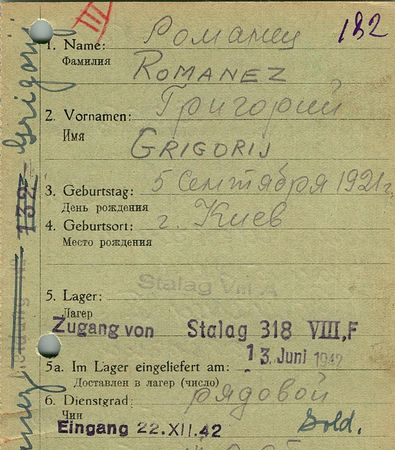 III
182
1. Name: Романец
Фамилия
ROMANEZ
2. Vornamen: Григорий
Имя
GRIGORIJ
3. Geburtstag: 5 сентября 1921 г.
День рождения
4. Geburtsort: г. Киев
Место рождения
Stalag VIII A
5. Lager:
Лагерь
Zugang von Stalag 318 VIII, F
13. Juni 1942
5a. Im Lager eingeliefert am:
Доставлен в лагер (число)
6. Dienstgrad: рядовой
Чин
Eingang 22.XII.42 Sold.
Grigorij
132